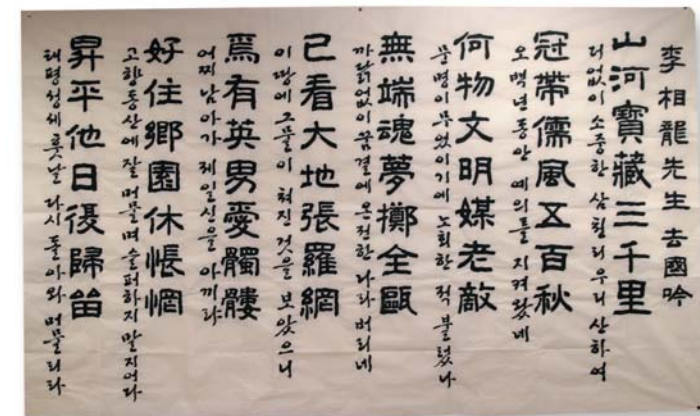 李相龍先生 去國吟
山河寶藏三千里
더없이 소중한 삼천리 우리 산하여
冠帶儒風五百秋
오백년 동안 예의를 지켜왔네
何物文明媒老敵
문명이 무엇이기에 노회한 적 불렀나
無端魂夢擲全甌
까닭없이 꿈결에 온전한 나라 버리네
已看大地張羅網
이 땅에 그물이 쳐진 것을 보았으니
焉有英男愛髑髏
어찌 남아가 제 일신을 아끼랴
好住鄕園休悵惘
고향동산에 잘 머물며 슬퍼하지 말지어다
昇平他日復歸留
태평성세 훗날 다시 돌아와 머물리라